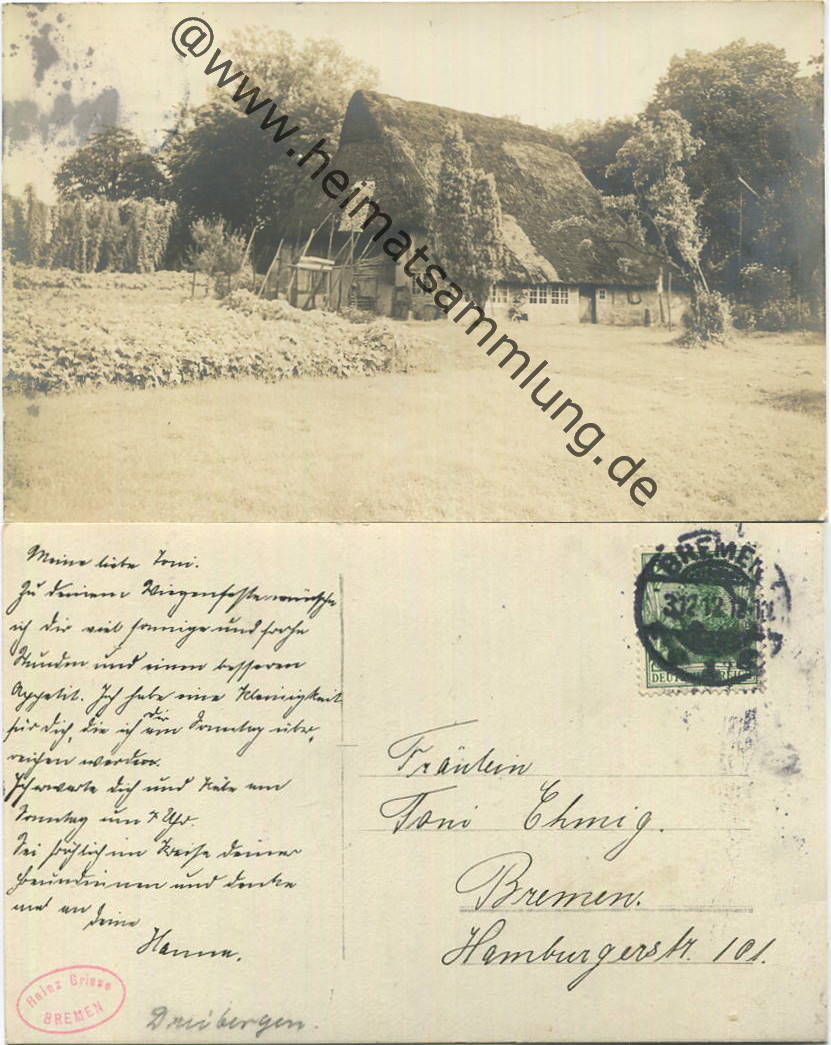 @www.heimatsammlung.de
Meine liebe Toni.
Zu deinem Wiegenfeste wünsche
ich dir viel sonnige und frohe
Stunden und einen besseren
Appetit. Ich habe eine Kleinigkeit
für dich, die ich dir am Sonntag über-
reichen werde.
Ich erwarte dich und Käte am
Sonntag um 4 Uhr.
Sei fröhlich im Kreise deiner
Freundinnen und denke
mal an
deine
Hanna.
BREMEN
DEUTSCHES REICH
Fräulein
Toni Ehmig.
Bremen.
Hamburgerstr. 101.
Heinz Griese
BREMEN
Dreibergen.